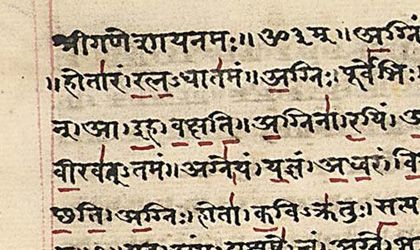 श्रीगणेशायनमः॥ॐ३म्॥अग्नि
॥होतारं।रत्नऽधातमं॥अग्निः।पूर्वेभिः
न्।आ।इह।वक्षति॥अग्निना।रयिं।अ
वीरवत्ऽतमं॥अग्ने।यं।यज्ञं।अध्वरं।वि
छति।अग्निः।होता।कविऽक्रतुः।सत्य